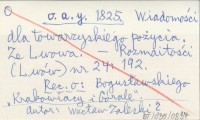 o.a.y. 1825. Wiadomości
dla towarzyskiego pożycia.
Ze Lwowa. — Rozmaitości
(Lwów) nr 24: 192.
Rec. o: Bogusławskiego
„Krakowiacy i Górale".
autor: Wacław Zaleski?